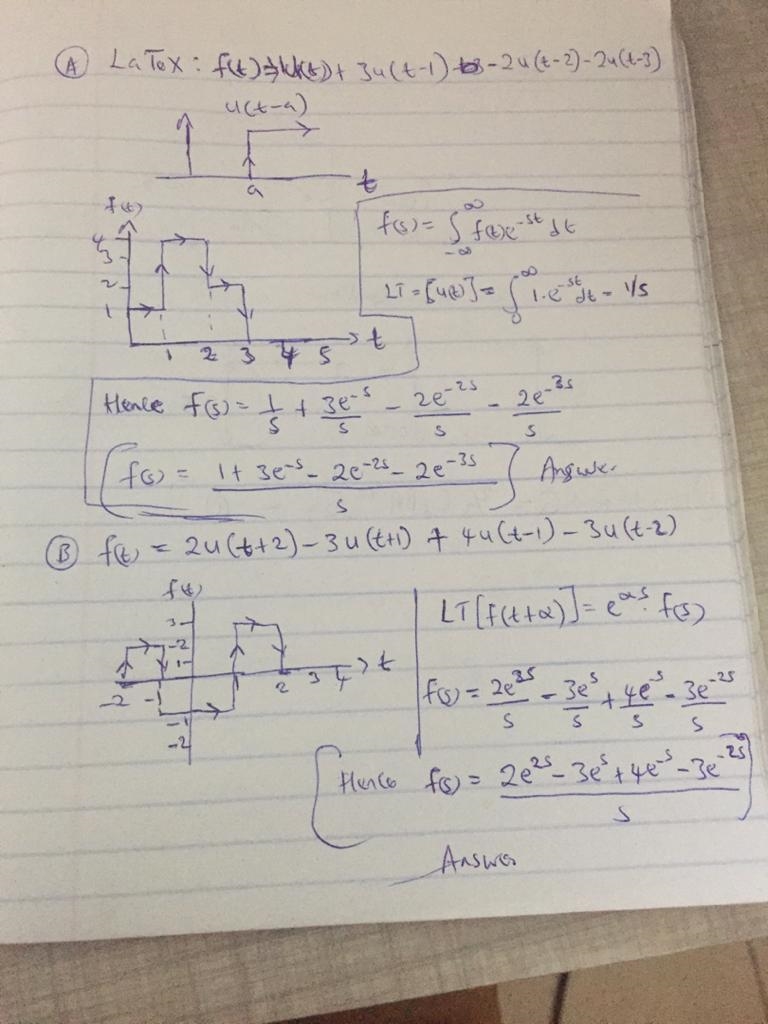 (A) LaTex : f(t) = u(t) + 3u(t-1) - 2u(t-2) - 2u(t-3)
u(t-a)
a t
f(t)
4
3
2
1
1 2 3 4 5 t
f(s) = ∫_{-∞}^{∞} f(t)e^{-st} dt
LT = [u(t)] = ∫_{0}^{∞} 1.e^{-st} dt = 1/s
Hence f(s) = 1/s + 3e^{-s}/s - 2e^{-2s}/s - 2e^{-3s}/s
f(s) = (1 + 3e^{-s} - 2e^{-2s} - 2e^{-3s})/s Answer.
(B) f(t) = 2u(t+2) - 3u(t+1) + 4u(t-1) - 3u(t-2)
f(t)
3
-2
1
-2 -1 2 3 4 t
-1
-2
LT[f(t+α)] = e^{αs}. f(s)
f(s) = 2e^{2s}/s - 3e^{s}/s + 4e^{-s}/s - 3e^{-2s}/s
Hence f(s) = (2e^{2s} - 3e^{s} + 4e^{-s} - 3e^{-2s})/s
Answer